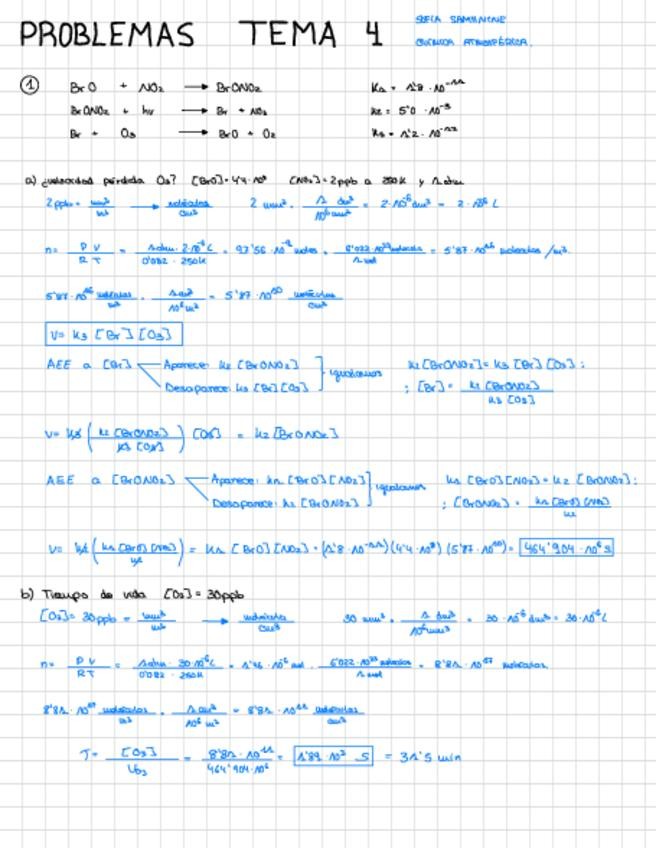 PROBLEMAS TEMA 4
QUÍMICA ATMOSFÉRICA.
① BrO + NO₂ → BrONO₂ K₁ = 1'8 · 10⁻¹¹
BrONO₂ + hν → Br + NO₃ K₂ = 5'0 · 10⁻³
Br + O₃ → BrO + O₂ K₃ = 1'2 · 10⁻¹²
a) ¿velocidad pérdida O₃? [BrO] = 4'4 · 10⁸ [NO₂] = 2 ppb a 250K y 1 atm
2 ppb = mm³/m³ → moléculas/cm³ 2 mm³ · 1 dm³/10⁶ mm³ = 2 · 10⁻⁶ dm³ = 2 · 10⁻⁶ L
n = P V / R T = 1 atm · 2 · 10⁻⁶ L / 0'082 · 250K = 97'56 · 10⁻⁹ moles · 6'022 · 10²³ moléculas / 1 mol = 5'87 · 10¹⁶ moléculas / m³
5'87 · 10¹⁶ moléculas/m³ · 1 m³/10⁶ cm³ = 5'87 · 10¹⁰ moléculas/cm³
V = K₃ [Br] [O₃]
AEE a [Br] Aparece: K₂ [BrONO₂] igualamos K₂ [BrONO₂] = K₃ [Br] [O₃] ;
Desaparece: K₃ [Br] [O₃] ; [Br] = K₂ [BrONO₂] / K₃ [O₃]
V = K₃ ( K₂ [BrONO₂] / K₃ [O₃] ) [O₃] = K₂ [BrONO₂]
AEE a [BrONO₂] Aparece: K₁ [BrO] [NO₂] igualamos K₁ [BrO] [NO₂] = K₂ [BrONO₂] ;
Desaparece: K₂ [BrONO₂] ; [BrONO₂] = K₁ [BrO] [NO₂] / K₂
V = K₂ ( K₁ [BrO] [NO₂] / K₂ ) = K₁ [BrO] [NO₂] = (1'8 · 10⁻¹¹) (4'4 · 10⁸) (5'87 · 10¹⁰) = 464'904 · 10⁶ s
b) Tiempo de vida [O₃] = 30 ppb
[O₃] = 30 ppb = mm³/m³ → moléculas/cm³ 30 mm³ · 1 dm³/10⁶ mm³ = 30 · 10⁻⁶ dm³ = 30 · 10⁻⁶ L
n = P V / R T = 1 atm · 30 · 10⁻⁶ L / 0'082 · 250K = 1'46 · 10⁻⁶ mol · 6'022 · 10²³ moléculas / 1 mol = 8'81 · 10¹⁷ moléculas
8'81 · 10¹⁷ moléculas/m³ · 1 m³/10⁶ cm³ = 8'81 · 10¹¹ moléculas/cm³
T = [O₃] / V₀₃ = 8'81 · 10¹¹ / 464'904 · 10⁶ = 1'89 · 10³ s = 31'5 min